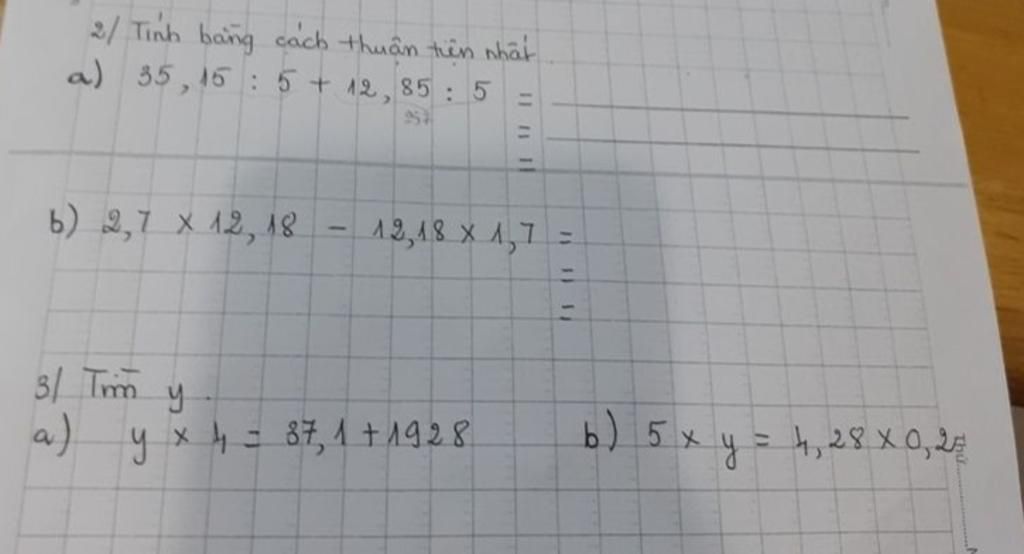 2/ Tính bằng cách thuận tiện nhất
a) 35,15 : 5 + 12,85 : 5 =
=
=
b) 2,7 x 12,18 - 12,18 x 1,7 =
=
=
3/ Tìm y.
a) y x 4 = 37,1 + 1928
b) 5 x y = 4,28 x 0,2